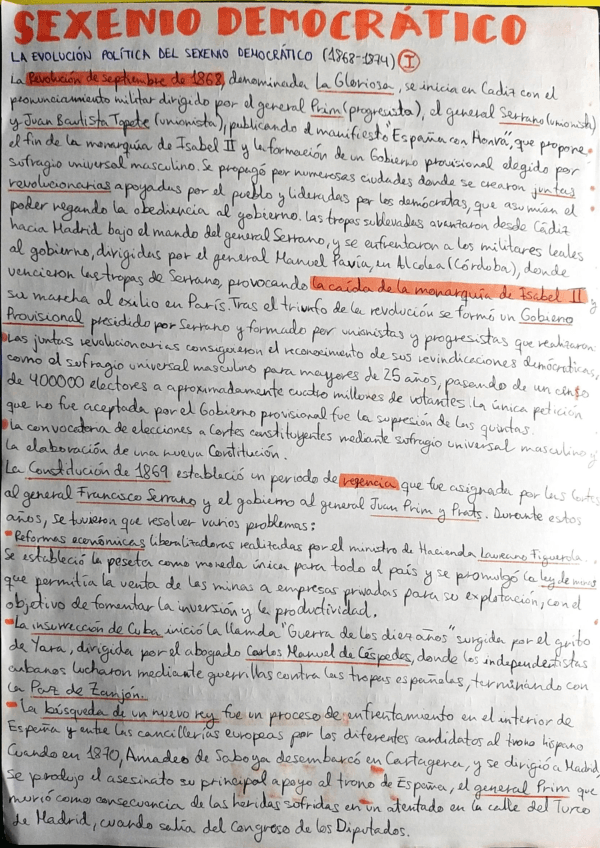 SEXENIO DEMOCRÁTICO
LA EVOLUCIÓN POLÍTICA DEL SEXENIO DEMOCRÁTICO (1868-1874) I
La Revolución de septiembre de 1868, denominada La Gloriosa, se inicia en Cádiz con el
pronunciamiento militar dirigido por el general Prim (progresista), el general Serrano (unionista)
y Juan Bautista Topete (unionista), publicando el manifiesto España con Honra", que propone
el fin de la monarquía de Isabel II y la formación de un Gobierno provisional elegido por
sufragio universal masculino. Se propagó por numerosas ciudades donde se crearon juntas
revolucionarias apoyadas por el pueblo y lideradas por los demócratas, que asumían el
poder negando la obediencia al gobierno. Las tropas sublevadas avanzaron desde Cádiz
hacia Madrid bajo el mando del general Serrano, y se enfrentaron a los militares leales
al gobierno, dirigidas por el general Manuel Pavía, en Alcolea (Córdoba), donde
vencieron las tropas de Serrano, provocando la caída de la monarquía de Isabel II y
su marcha al exilio en París. Tras el triunfo de la revolución se formó un Gobierno
Provisional presidido por Serrano y formado por unionistas y progresistas que realizaron:
• Las juntas revolucionarias consiguieron el reconocimiento de sus revindicaciones demócraticas,
como el sufragio universal masculino para mayores de 25 años, pasando de un censo
de 400000 electores a aproximadamente cuatro millones de votantes. La única petición
que no fue aceptada por el Gobierno provisional fue la supresión de las quintas.
• La convocatoria de elecciones a Cortes constituyentes mediante sufragio universal masculino y
la elaboración de una nueva Constitución.
La Constitución de 1869 estableció un periodo de regencia que fue asignada por las Cortes
al general Francisco Serrano y el gobierno al general Juan Prim y Prats. Durante estos
años, se tuvieron que resolver varios problemas:
• Reformas económicas liberalizadoras realizadas por el ministro de Hacienda Laureano Figuerola.
Se estableció la peseta como moneda única para todo el país y se promulgó la ley de minas
que permitía la venta de las minas a empresas privadas para su explotación, con el
objetivo de fomentar la inversión y la productividad.
• La insurrección de Cuba inició la llamda "Guerra de los diez años" surgida por el grito
de Yara, dirigida por el abogado Carlos Manuel de Céspedes, donde los independentistas
cubanos lucharon mediante guerrillas contra las tropas españoles, terminando con
la Paz de Zanjón.
• La búsqueda de un nuevo rey fue un proceso de enfrentamiento en el interior de
España y entre las cancillerías europeas por los diferentes candidatos al trono hispano
Cuando en 1870, Amadeo de Saboya desembarcó en Cartagena, y se dirigió a Madrid,
se produjo el asesinato su principal apoyo al trono de España, el general Prim que
murió como consecuencia de las heridas sofridas en un atentado en la calle del Turco
de Madrid, cuando salía del Congreso de los Diputados.